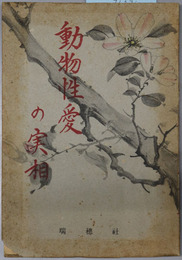 動物性愛
の実相
瑞穂社